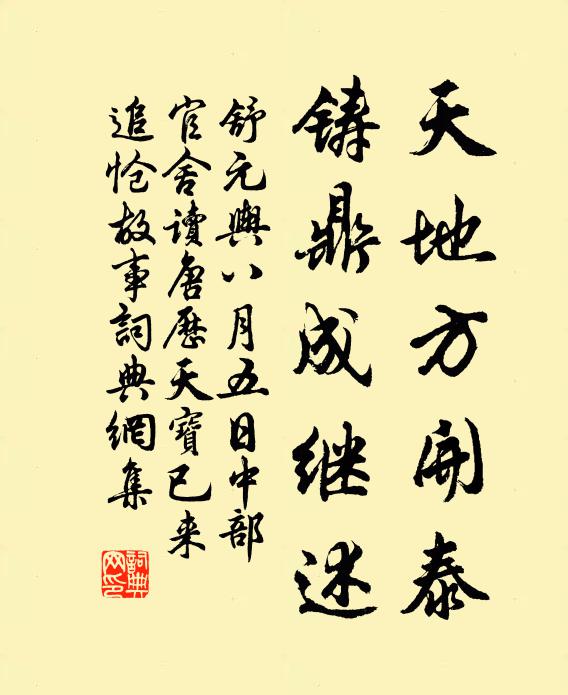 天地方開泰
铸鼎成继述
舒元輿八月五日中部
官舍讀唐歷天寶已来
追愴故事詞典網集
詞典网印